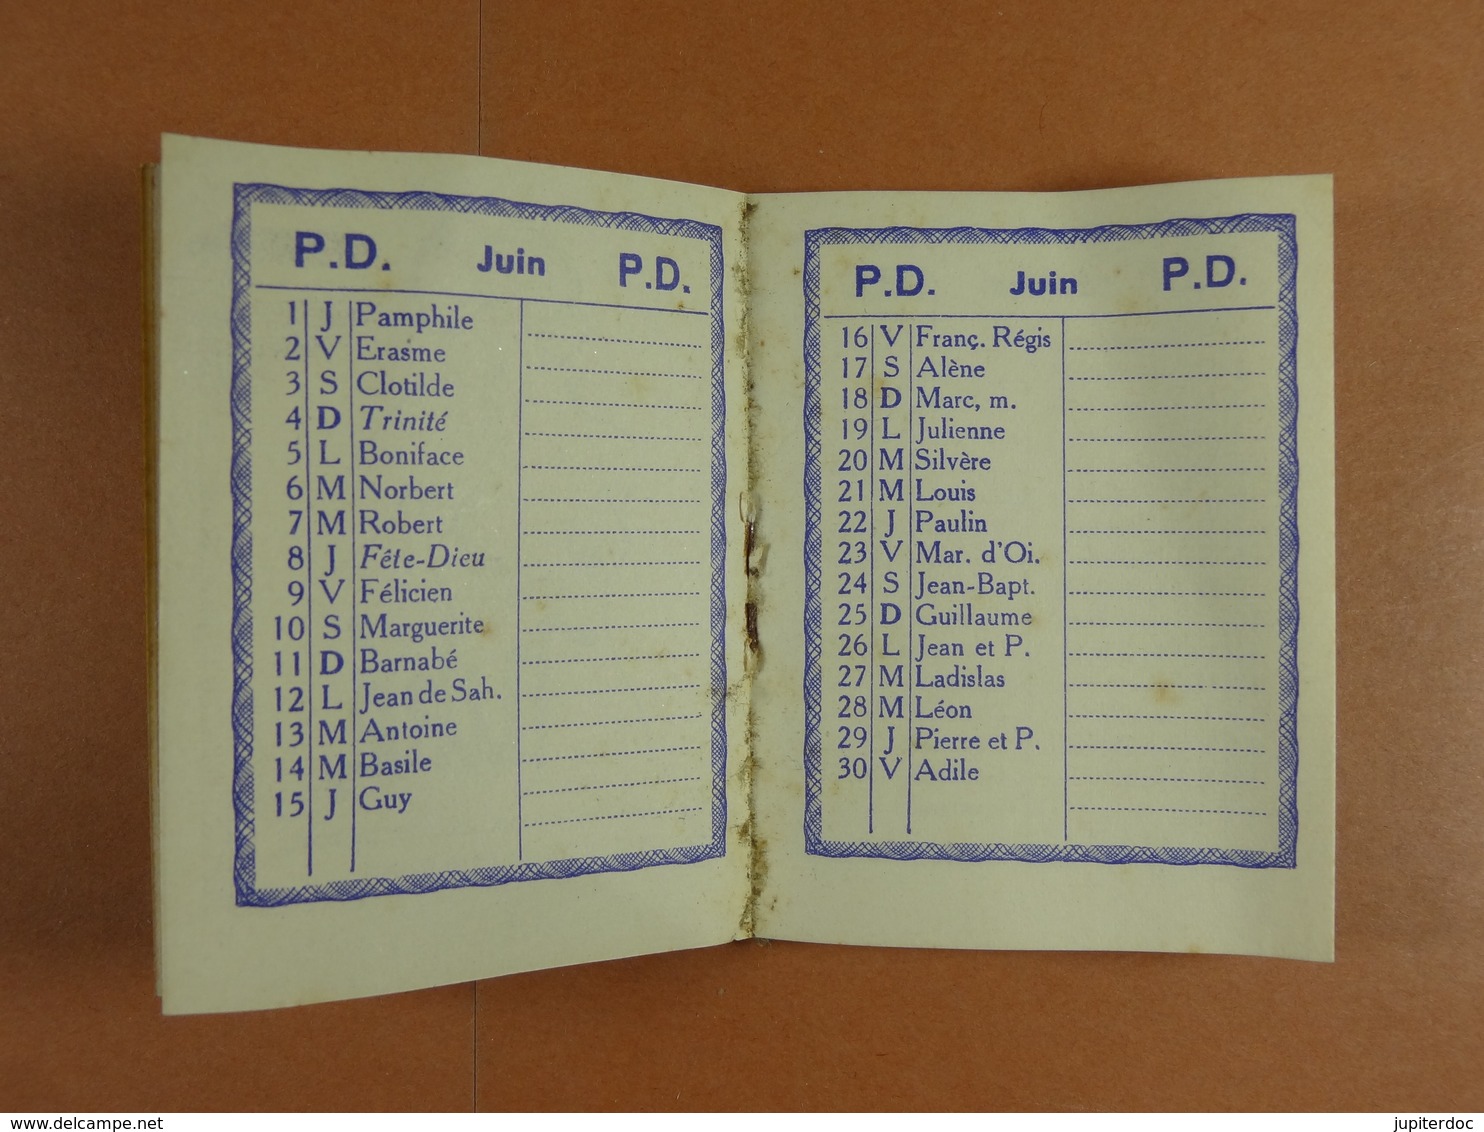 P.D. Juin P.D.
1 J Pamphile
2 V Erasme
3 S Clotilde
4 D Trinité
5 L Boniface
6 M Norbert
7 M Robert
8 J Fête-Dieu
9 V Félicien
10 S Marguerite
11 D Barnabé
12 L Jean de Sah.
13 M Antoine
14 M Basile
15 J Guy
P.D. Juin P.D.
16 V Franç. Régis
17 S Alène
18 D Marc, m.
19 L Julienne
20 M Silvère
21 M Louis
22 J Paulin
23 V Mar. d'Oi.
24 S Jean-Bapt.
25 D Guillaume
26 L Jean et P.
27 M Ladislas
28 M Léon
29 J Pierre et P.
30 V Adile
www.delcampe.net
jupiterdoc